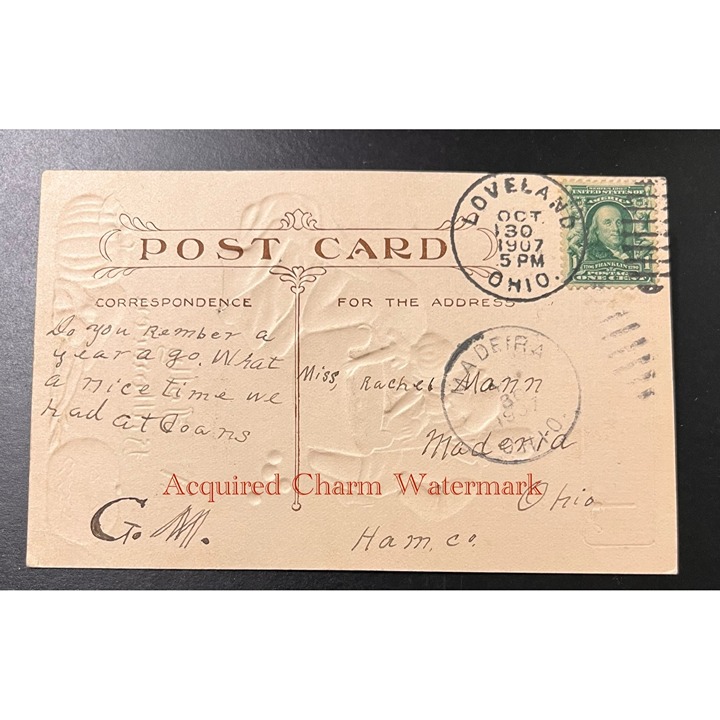 POST CARD
CORRESPONDENCE
FOR THE ADDRESS
LOVELAND
OCT.
30
1907
5 PM
OHIO.
UNITED STATES OF
AMERICA
FRANKLIN
POSTAGE
ONE CENT
Do you Rember a
year ago. What
a nice time we
had at Joans
G. M.
Miss, Rachel Mann
Maderia
Ohio
Ham. Co.
MADEIRA
1907
OHIO.
Acquired Charm Watermark